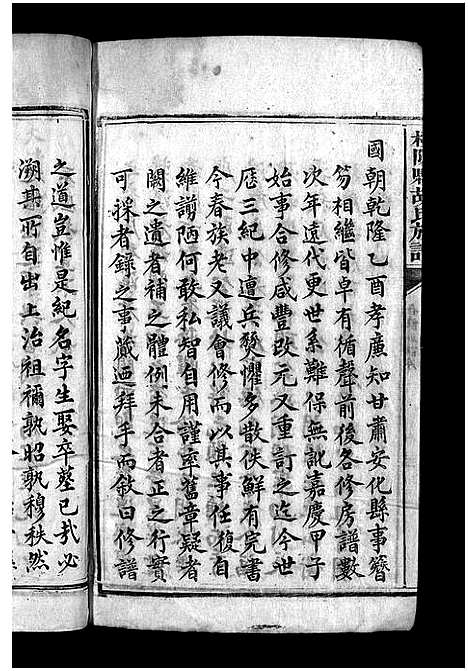 國朝乾隆乙酉孝廉知甘肅安化縣事簪
笏相繼皆卓有循聲前後各修房譜數
次年遠代更世系難保無訛嘉慶甲子
始事合修咸豐改元又重訂之迄今世
歷三紀中遭兵燹懼多散佚鮮有完書
今春族老又議會修而以其事任復自
維譾陋何敢私智自用謹率舊章疑者
闕之遺者補之體例未合者正之行實
可採者錄之事蕆迺拜手而敘曰修譜
之道豈惟是紀名字生娶卒墓已哉必
溯其所自出上治祖禰孰昭孰穆秩然